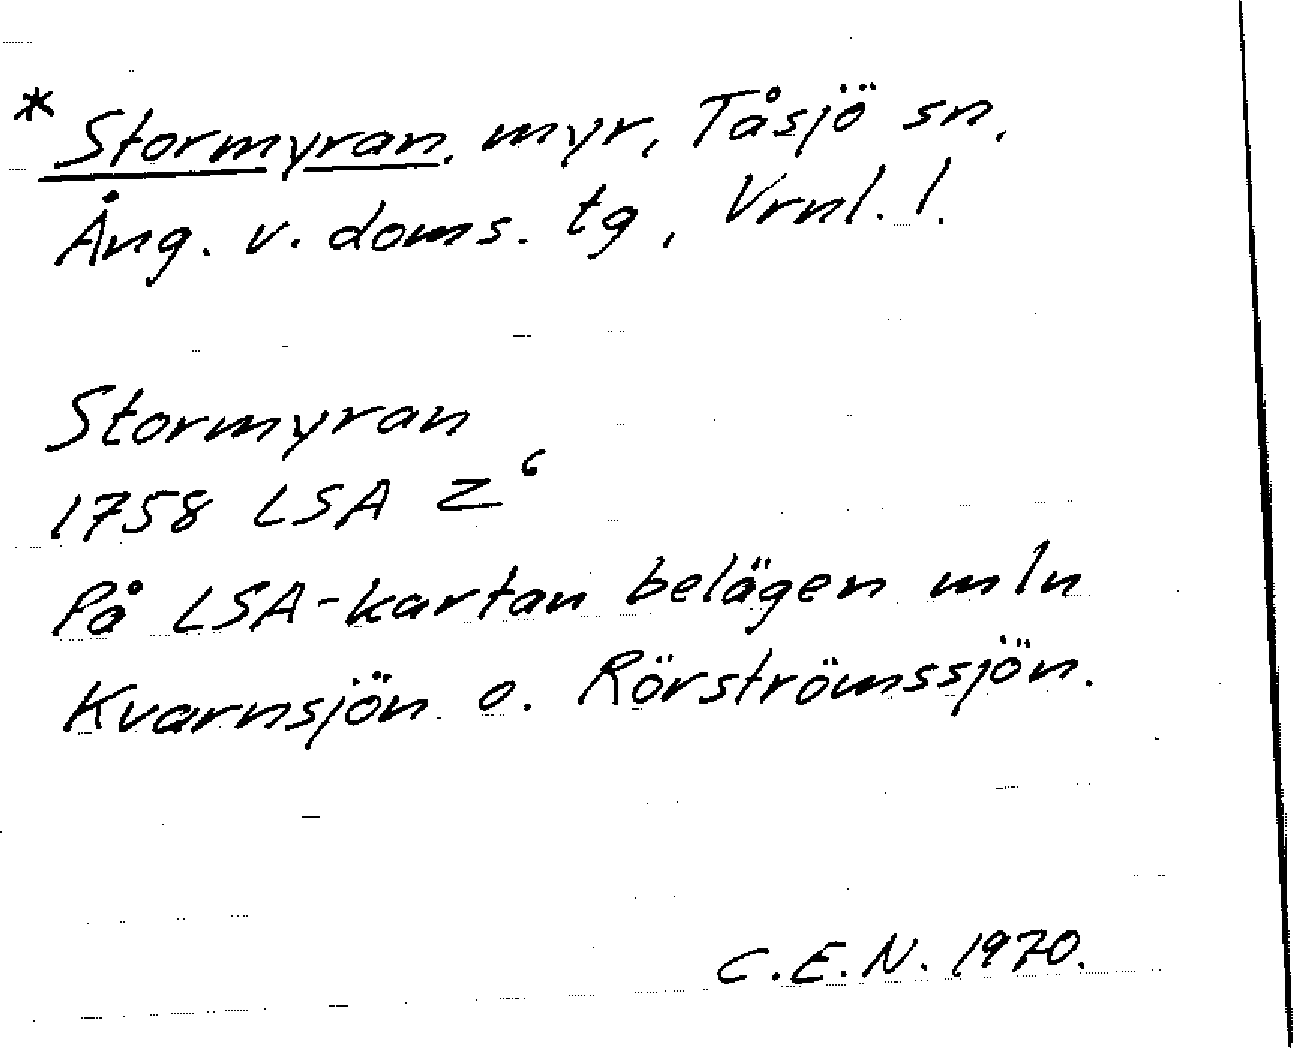 * Stormyran, myr, Tåsjö sn,
Ång. v. doms. tg, Vrnl. l.
Stormyran
1758 LSA Z⁶
På LSA-kartan belägen mln
Kvarnsjön o. Rörströmssjön.
C.E.N. 1970.